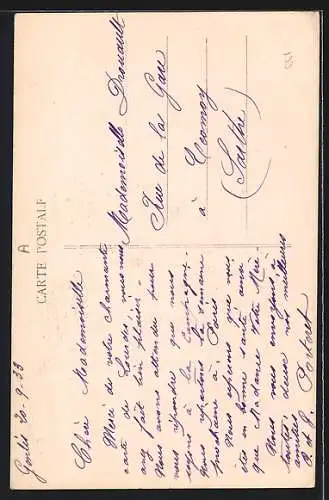 CARTE POSTALE
A
20-9-33
Chère Mademoiselle
Merci de votre charmante
carte de Lourdes; vous nous
avez fait bien plaisir.
Nous avons attendu pour
vous répondre que nous
soyons à la Campagne.
nous repartons la semaine
prochaine à Paris
Nous espérons que vous
êtes en bonne santé ainsi
que Madame Votre Mère.
Nous vous envoyons
toutes deux nos meilleures
amitiés.
Mademoiselle Drouault
Rue de la Gare
à Ecomoy
(Sarthe)